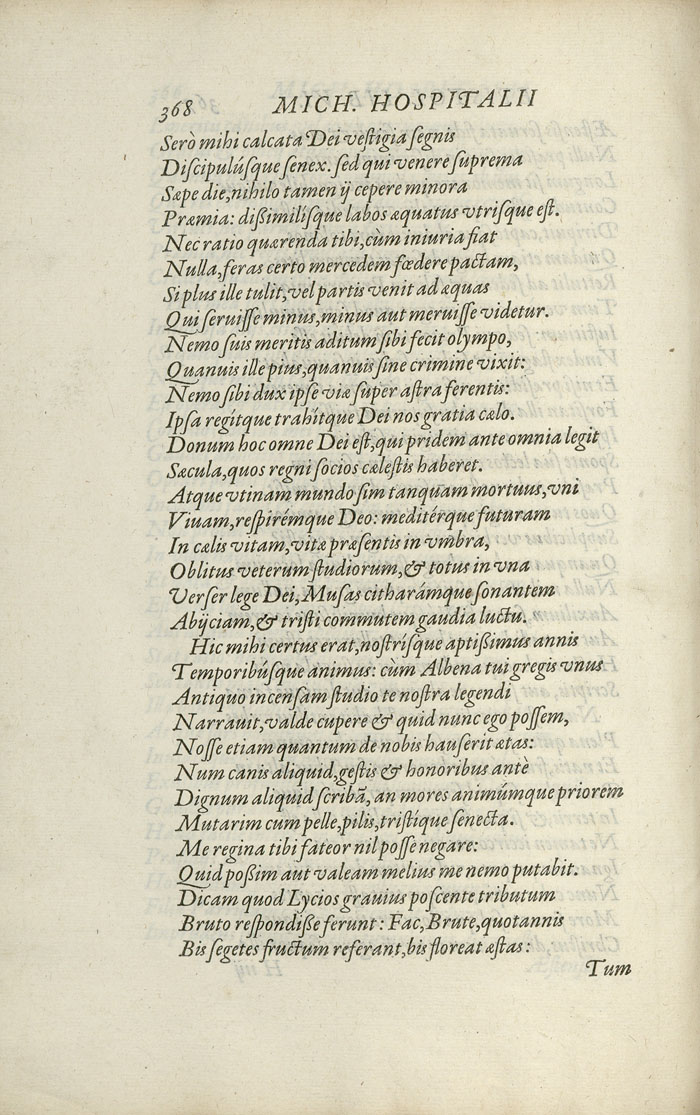 368 MICH. HOSPITALII
Serò mihi calcata Dei vestigia segnis
Discipulúsque senex. sed qui venere suprema
Sæpe die, nihilo tamen ij cepere minora
Præmia: dißimilísque labos æquatus vtrisque est.
Nec ratio quærenda tibi, cùm iniuria fiat
Nulla, feras certo mercedem fœdere pactam,
Si plus ille tulit, vel partis venit ad æquas
Qui seruisse minus, minus aut meruisse videtur.
Nemo suis meritis aditum sibi fecit olympo,
Quanuis ille pius, quanuis sine crimine vixit:
Nemo sibi dux ipse viæ super astra ferentis:
Ipsa regítque trahítque Dei nos gratia cælo.
Donum hoc omne Dei est, qui pridem ante omnia legit
Sæcula, quos regni socios cælestis haberet.
Atque vtinam mundo sim tanquam mortuus, vni
Viuam, respirémque Deo: meditérque futuram
In cælis vitam, vitæ præsentis in vmbra,
Oblitus veterum studiorum, & totus in vna
Verser lege Dei, Musas citharámque sonantem
Abijciam, & tristi commutem gaudia luctu.
Hic mihi certus erat, nostrísque aptißimus annis
Temporibúsque animus: cùm Albena tui gregis vnus
Antiquo incensam studio te nostra legendi
Narrauit, valde cupere & quid nunc ego possem,
Nosse etiam quantum de nobis hauserit ætas:
Num canis aliquid, gestis & honoribus antè
Dignum aliquid scribã, an mores animúmque priorem
Mutarim cum pelle, pilis, tristique senecta.
Me regina tibi fateor nil posse negare:
Quid poßim aut valeam melius me nemo putabit.
Dicam quod Lycios grauius poscente tributum
Bruto respondiße ferunt: Fac, Brute, quotannis
Bis segetes fructum referant, bis floreat æstas:
Tum